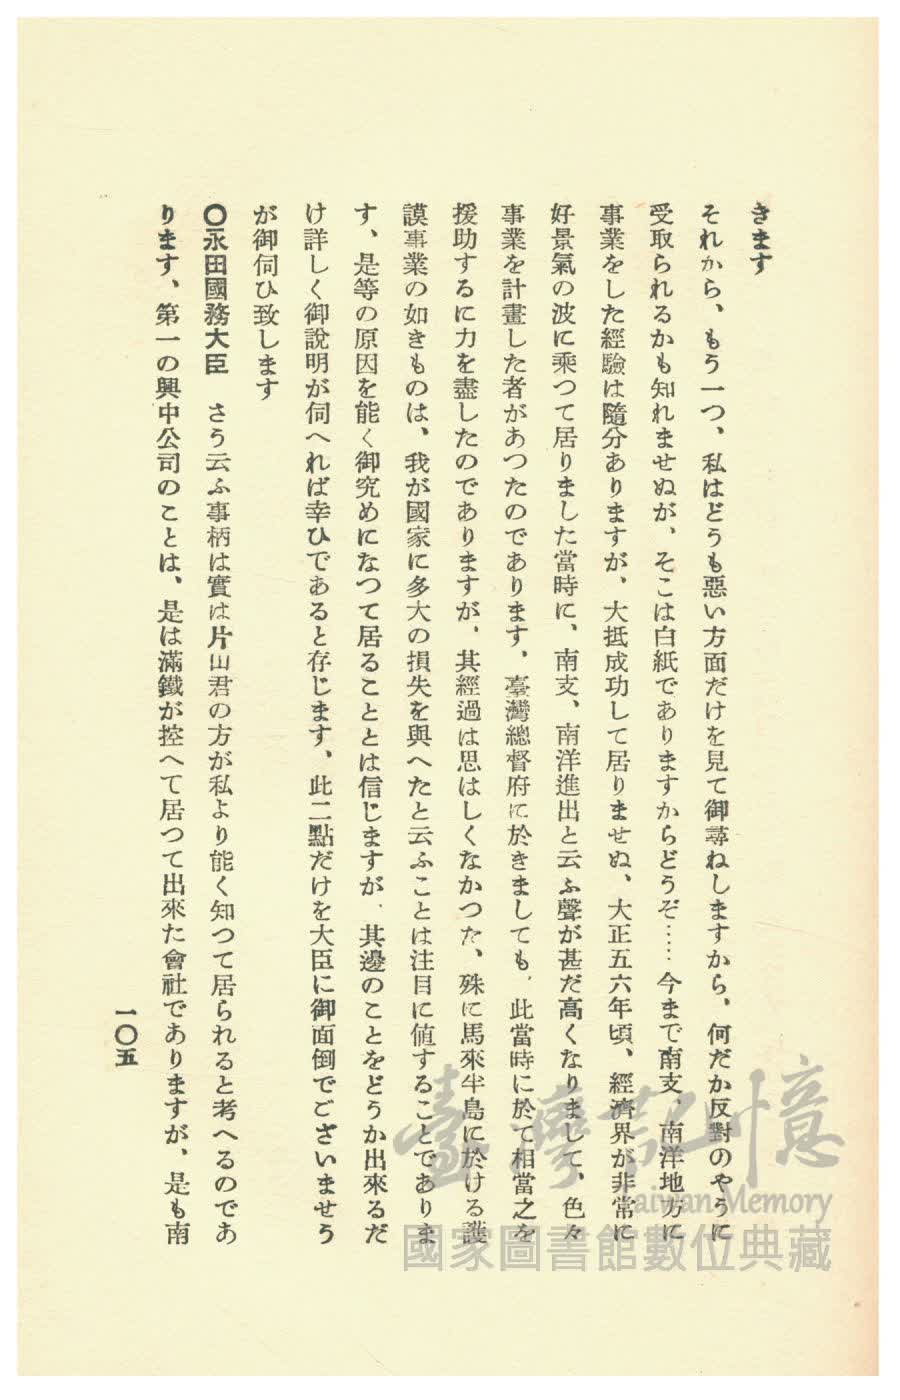 きます
それから、もう一つ、私はどうも惡い方面だけを見て御尋ねしますから、何だか反對のやうに
受取られるかも知れませぬが、そこは白紙でありますからどうぞ……今まで南支、南洋地方に
事業をした經驗は隨分ありますが、大抵成功して居りませぬ、大正五六年頃、經濟界が非常に
好景氣の波に乘つて居りました當時に、南支、南洋進出と云ふ聲が甚だ高くなりまして、色々
事業を計畫した者があつたのであります、臺灣總督府に於きましても、此當時に於て相當之を
援助するに力を盡したのでありますが、其經過は思はしくなかつた、殊に馬來半島に於ける護
謨事業の如きものは、我が國家に多大の損失を與へたと云ふことは注目に値することでありま
す、是等の原因を能く御究めになつて居ることとは信じますが、其邊のことをどうか出來るだ
け詳しく御說明が伺へれば幸ひであると存じます、此二點だけを大臣に御面倒でございませう
が御伺ひ致します
〇永田國務大臣 さう云ふ事柄は實は片山君の方が私より能く知つて居られると考へるのであ
ります、第一の興中公司のことは、是は滿鐵が控へて居つて出來た會社でありますが、是も南
一〇五
臺灣記憶
Taiwan Memory
國家圖書館數位典藏